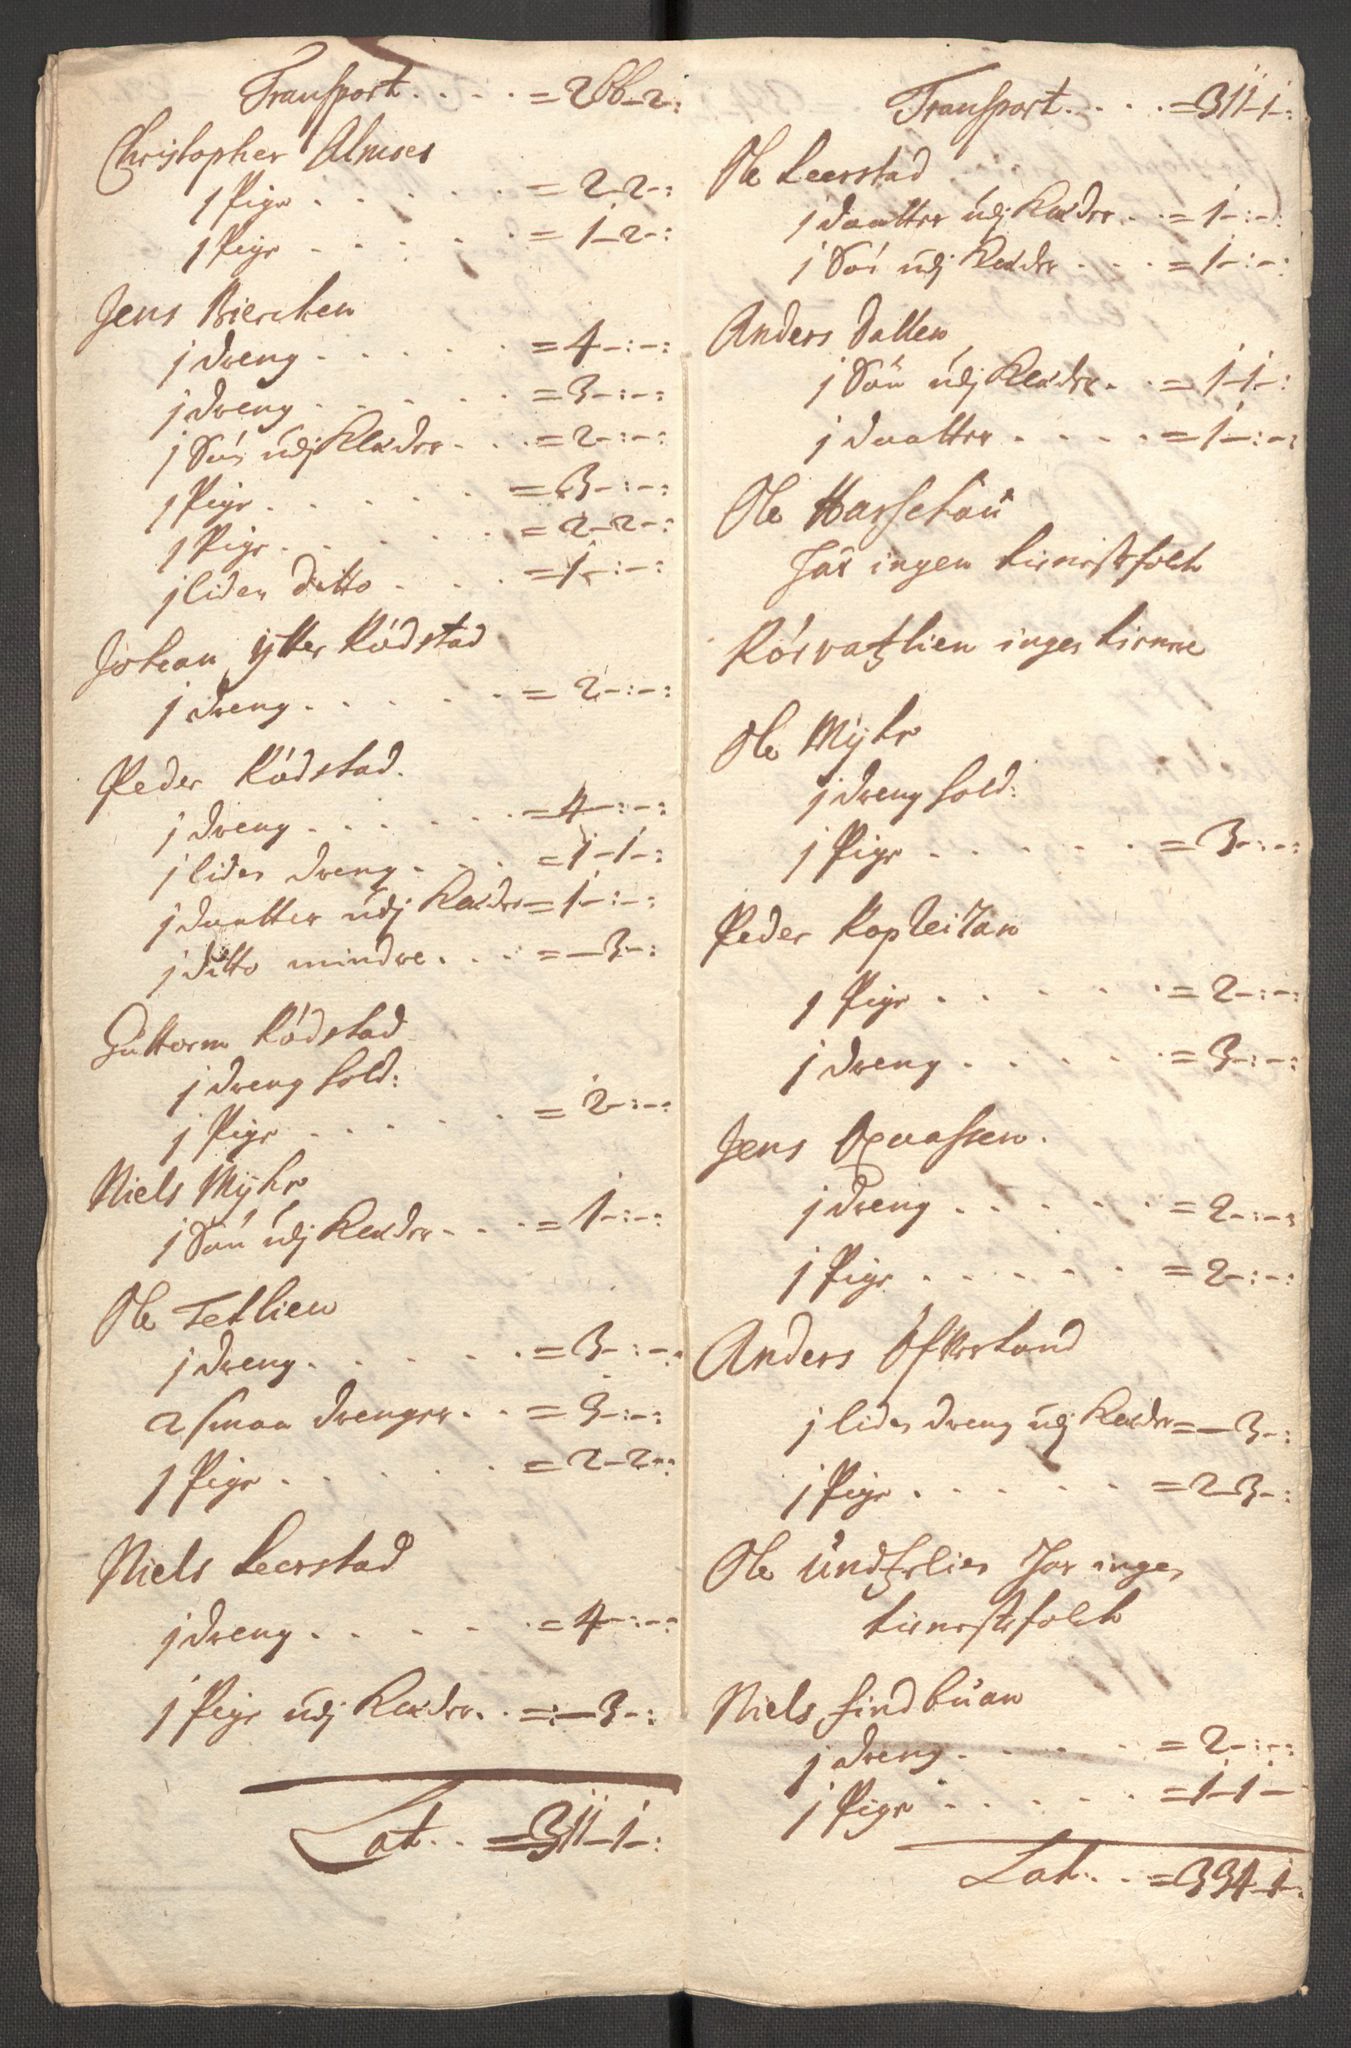 Transport . . . . = 266-2-:
Christopher Almoes
1 Pige . . . . . = 2-2-:
1 Pige . . . . . = 1-2-:
Jens Bierchen
j dreng . . . . . = 4-:-:
j dreng . . . . . = 3-:-:
j Sön udj Klæder . . . = 2-:-:
1 Pige . . . . . = 3-:-:
1 Pige . . . . . = 2-2-:
j liden ditto . . . = 1-:-:
Johan ytter Rödstad
j dreng . . . . . = 2-:-:
Peder Rödstad.
j dreng . . . . . . = 4-:-:
j liden dreng . . . = 1-1-:
j daatter udj Klæder = 1-:-:
j ditto mindre . . . = -3-:
Guttorm Rödstad
j dreng sold:
j Pige . . . . . . = 2-:-:
Niels Myhr
j Sön udj Klæder . . . = 1-:-:
Ole Tetlien
j dreng . . . . . = 3-:-:
2 smaa drenger . . = 3-:-:
1 Pige . . . . . = 2-2-:
Niels Leerstad
j dreng . . . . . = 4-:-:
j Pige udj Klæder . . = -3-:
Lat . . = 311-1-:
Transport . . . . = 311-1-:
Ole Leerstad
j daatter udj Klæder . . = 1-:-:
j Sön udj Klæder . . . = 1-:-:
Anders Dallen
j Sön udj Klæder . . = 1-1-:
j daatter . . . . = 1-:-:
Ole
har ingen tienistfolch
ingen tienere
Ole Myhr
j dreng sold:
j Pige . . . . . = 3-:-:
Peder
1 Pige . . . . . = 2-:-:
j dreng . . . . . = 3-:-:
Jens
j dreng . . . . . = 2-:-:
j Pige . . . . . = 2-:-:
Anders
j liden dreng udj Klæder = -3-:
j Pige . . . . . = 2-3-:
Ole Undtzlien har ingen
tienistfolch
Niels Sindbuan
j dreng . . . . . = 2-:-:
j Pige . . . . . = 1-1-
Lat . . . = 334-1-: